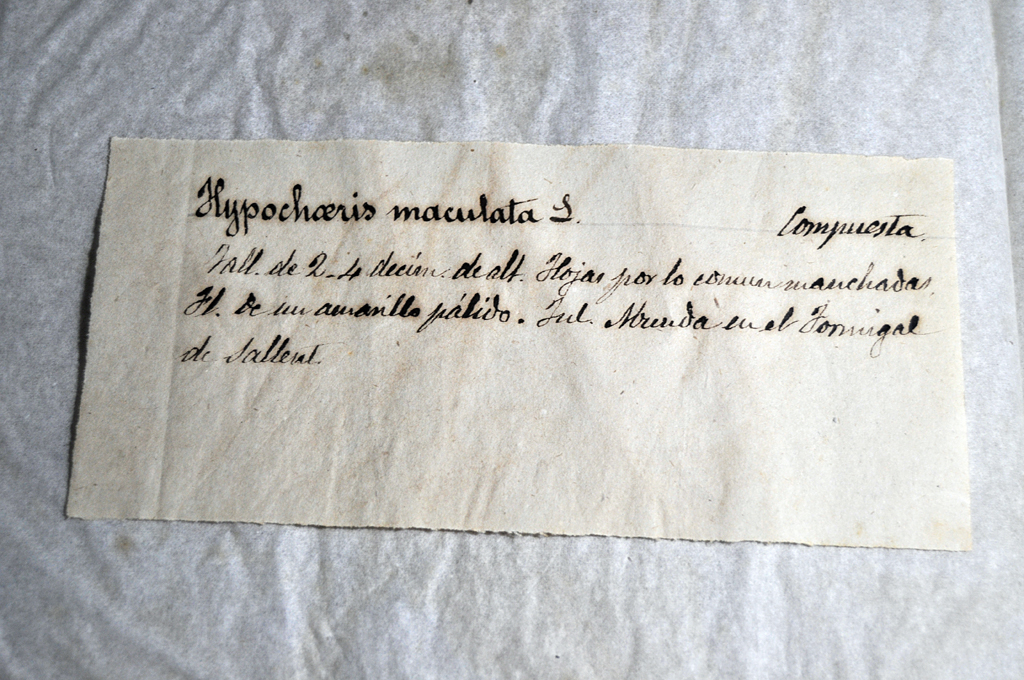 Hypochæris maculata L. Compuesta.
Tall. de 2-4 decím. de alt. Hojas por lo comun manchadas.
Fl. de un amarillo pálido. Jul. en el Formigal
de Sallent.